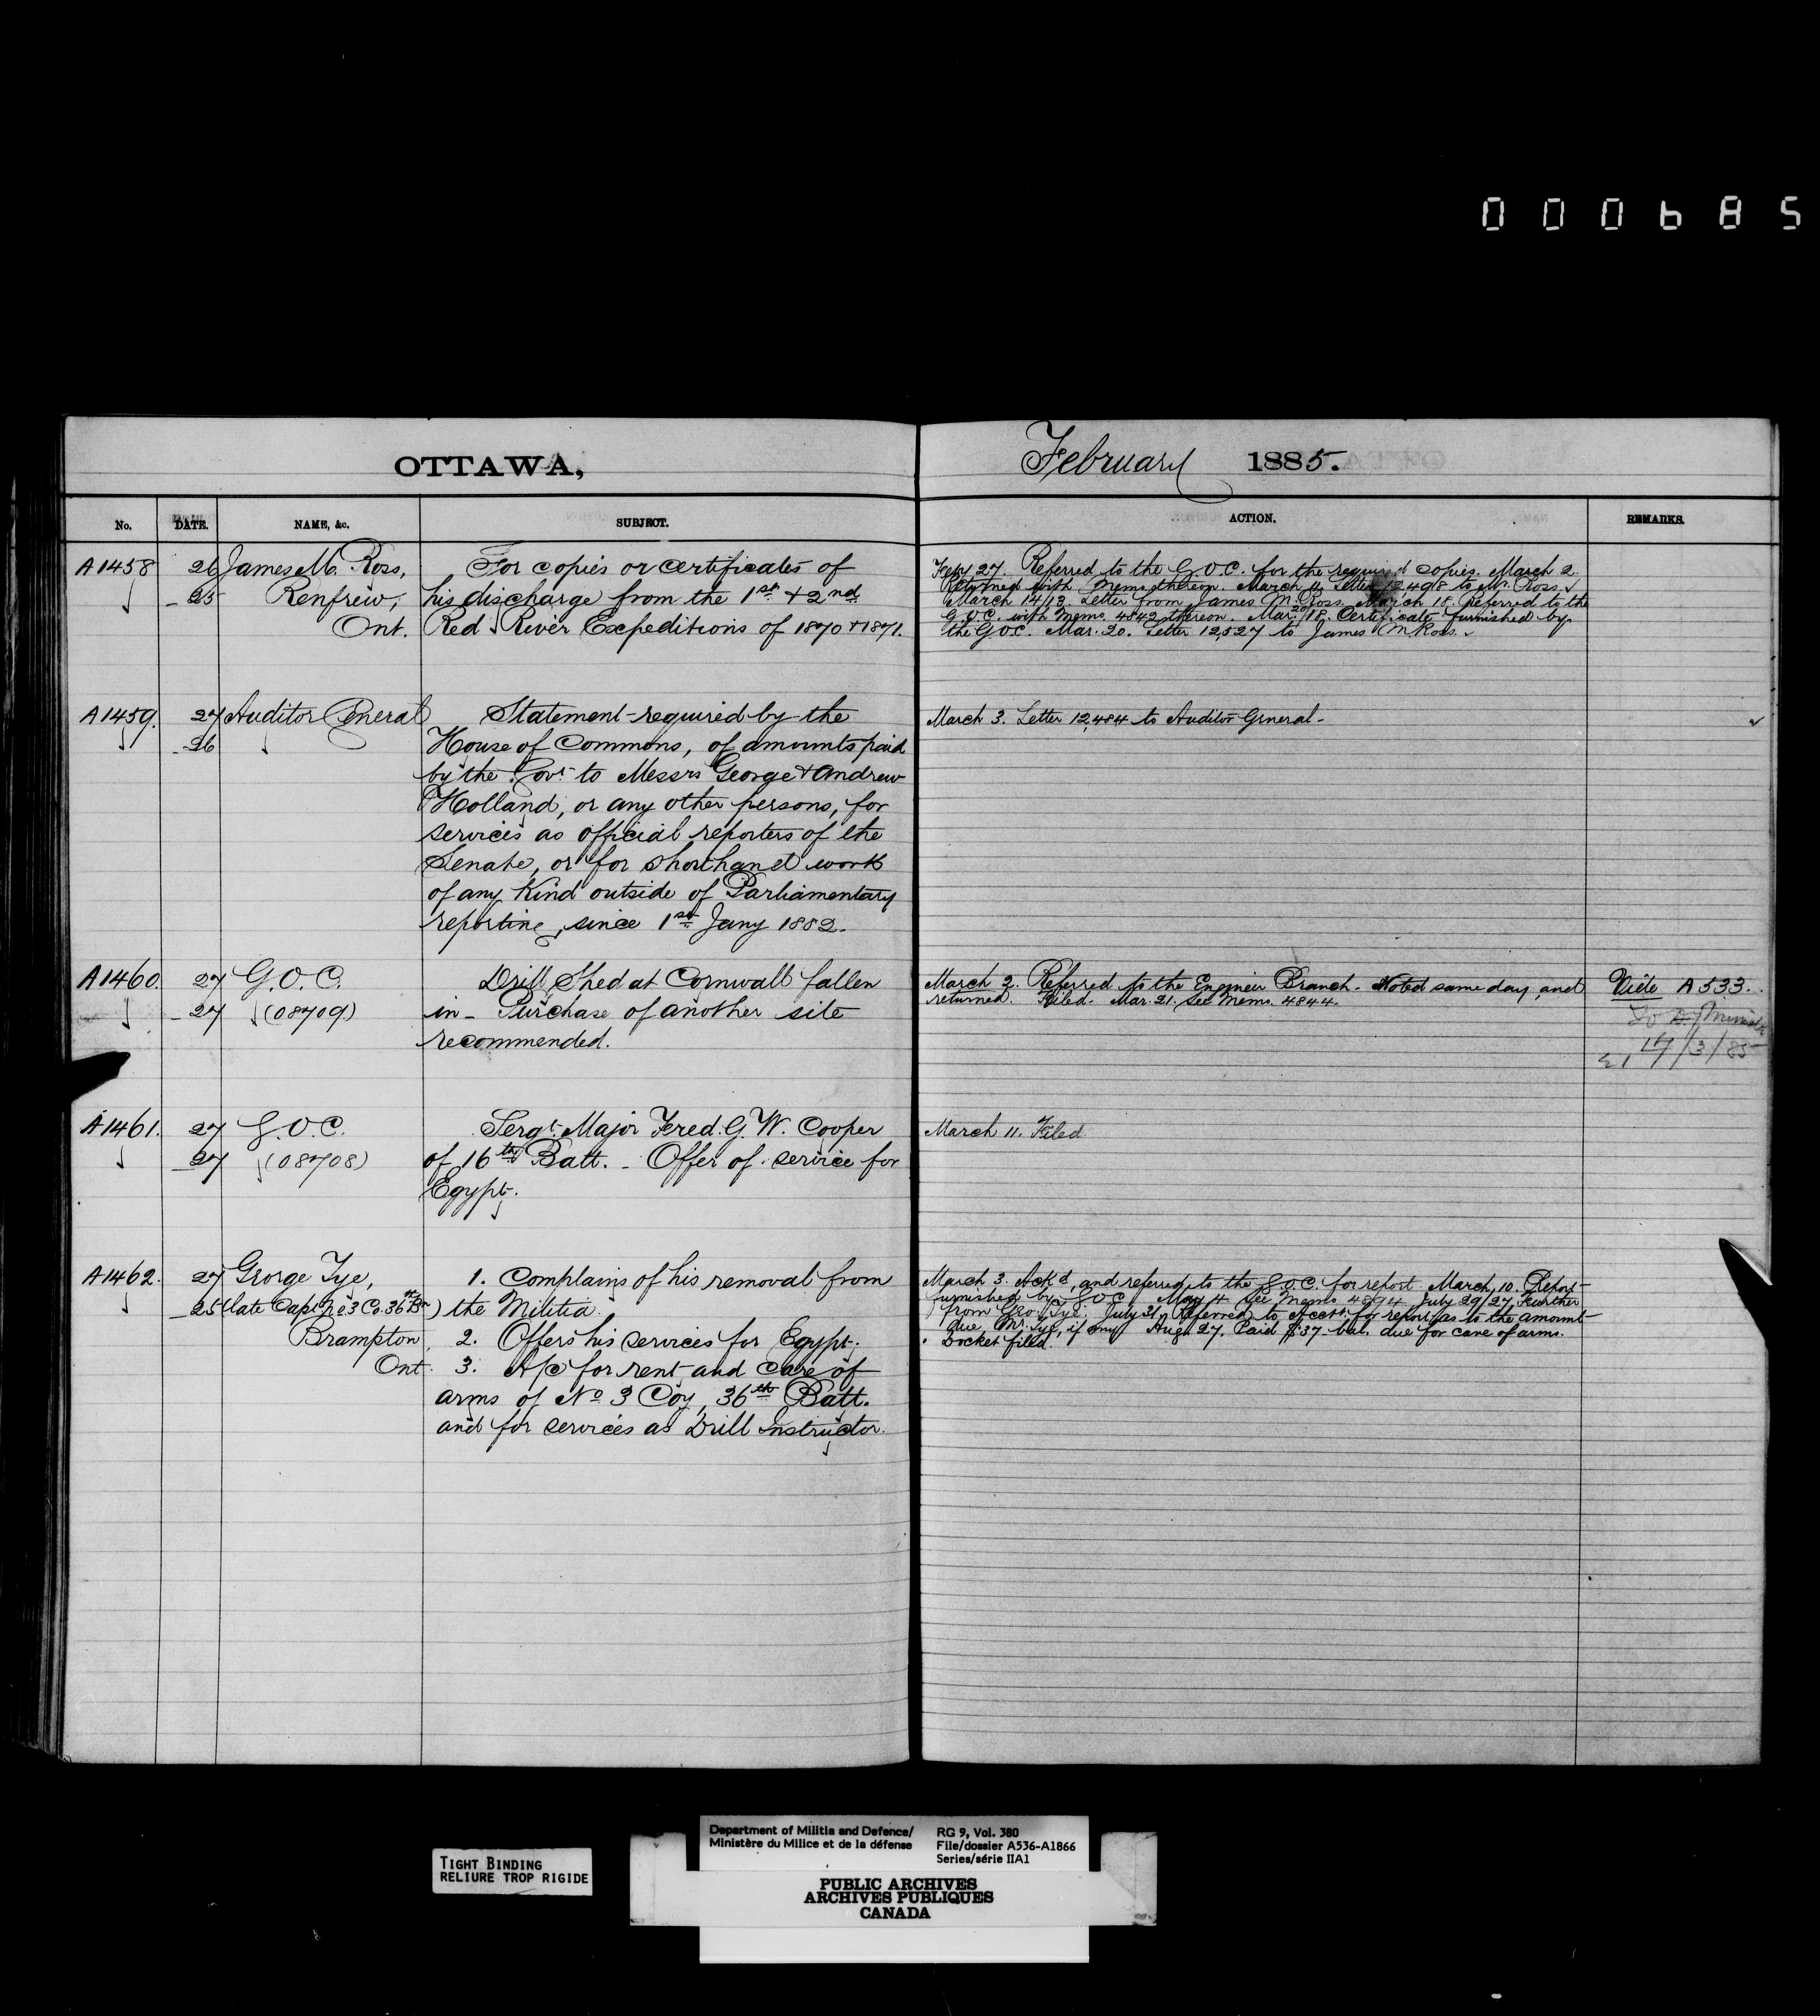 000685
OTTAWA,
February 1885.
No. DATE. NAME, &c. SUBJECT. ACTION. REMARKS.
A1458 26 James M. Ross, For copies or certificates of
25 Renfrew, his discharge from the 1st & 2nd
Ont. Red River Expeditions of 1870 & 1871.
Feby 27. Referred to the G.O.C. for the required copies. March 2.
Returned with Memo. thereon. March 4. Letter 12498 to Mr. Ross.
March 14/13. Letter from James M. Ross. March 18. Referred to the
G.O.C. with Memo. 4842 thereon. Mar. 20/18. Certificate furnished by
the G.O.C. Mar. 20. Letter 12,527 to James M Ross.
A1459. 27 Auditor General Statement required by the
26 House of Commons, of amounts paid
by the Govt to Messrs George & Andrew
Holland, or any other persons, for
services as official reporters of the
Senate, or for shorthand work
of any Kind outside of Parliamentary
reporting, since 1st Jany 1882.
March 3. Letter 12,484 to Auditor General-
A1460. 27 G.O.C. Drill Shed at Cornwall fallen
27 (08709) in- Purchase of another site
recommended.
March 2. Referred to the Engineer Branch. Noted same day, and
returned. Filed. Mar. 21. See Memo. 4844.
Vide A533.
To Minister
17/3/85
A1461. 27 G.O.C. Sergt. Major Fered. G. W. Cooper
27 (08708) of 16th Batt. - Offer of service for
Egypt.
March 11. Filed
A1462. 27 George Tye, 1. Complains of his removal from
25 (late Capt No 3 Co. 36th Bn) the Militia.
Brampton, 2. Offers his services for Egypt.
Ont. 3. A/c for rent and care of
arms of No 3 Coy, 36th Batt.
and for services as Drill Instructor.
March 3. Ack'd, and referred to the G.O.C. for report. March, 10. Report
furnished by G.O.C. May 4 See Memo 4894. July 29/27. Further
from Geo. Tye. July 31. Referred to Acctt. for report as to the amount
due Mr. Tye, if any. Aug. 27. Paid $37- bal. due for care of arms.
Docket filed.
TIGHT BINDING
RELIURE TROP RIGIDE
Department of Militia and Defence/
Ministère du Milice et de la défense
RG 9, Vol. 380
File/dossier A536-A1866
Series/série IIA1
PUBLIC ARCHIVES
ARCHIVES PUBLIQUES
CANADA